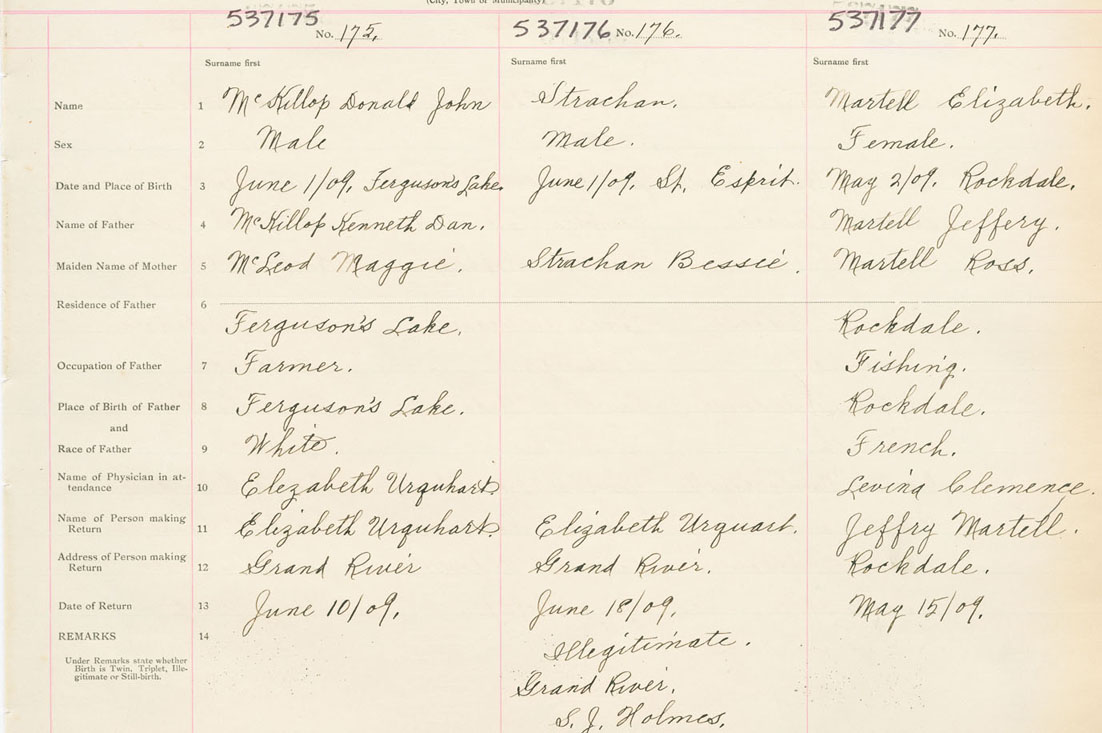 (City, Town or Municipality)
537175 No. 175. 537176 No. 176. 537177 No. 177.
Surname first Surname first Surname first
Name 1 McKillop Donald John Strachan. Martell Elizabeth.
Sex 2 Male Male. Female.
Date and Place of Birth 3 June 1/09, Ferguson's Lake. June 1/09. St. Esprit. May 2/09. Rockdale.
Name of Father 4 McKillop Kenneth Dan. Martell Jeffery.
Maiden Name of Mother 5 McLeod Maggie. Strachan Bessie. Martell Ross.
Residence of Father 6
Ferguson's Lake. Rockdale.
Occupation of Father 7 Farmer. Fishing.
Place of Birth of Father 8 Ferguson's Lake. Rockdale.
and
Race of Father 9 White. French.
Name of Physician in at-
tendance 10 Elezabeth Urquhart. Levina Clemence.
Name of Person making
Return 11 Elizabeth Urquhart. Elizabeth Urquart. Jeffry Martell.
Address of Person making
Return 12 Grand River Grand River. Rockdale.
Date of Return 13 June 10/09. June 18/09. May 15/09.
REMARKS 14 Illegitimate.
Under Remarks state whether
Birth is Twin, Triplet, Ille-
gitimate or Still-birth.
Grand River.
S. J. Holmes.